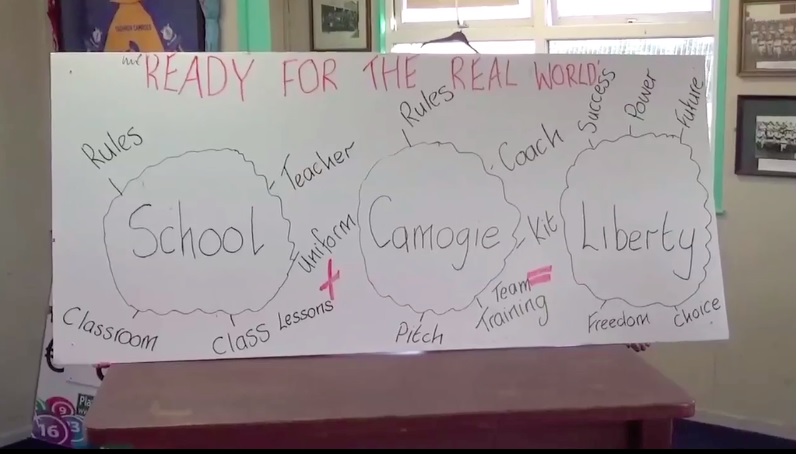 READY FOR THE REAL WORLD
Rules
Teacher
School
Uniform
Classroom
Class Lessons
+
Rules
Coach
Camogie
Kit
Pitch
Team
Training
=
Success
Power
Future
Liberty
Freedom
Choice
9
16
3